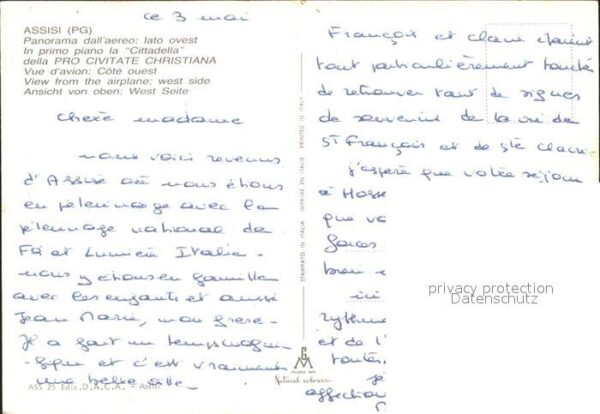 ce 3 mai
ASSISI (PG)
Panorama dall'aereo: lato ovest
In primo piano la "Cittadella"
della PRO CIVITATE CHRISTIANA
Vue d'avion: Côté ouest
View from the airplane: west side
Ansicht von oben: West Seite
Chère madame
nous voici revenus
d'Assise où nous étions
en pèlerinage avec le
pèlerinage national de
Foi et Lumière Italie.
nous y étions en famille
avec les enfants et aussi
Jean Marie, mon frère.
Il a fait un temps magni-
fique et c'est vraiment
une belle ville.
ASS. 25 Ediz. D.A.C.A. - Assisi
STAMPATO IN ITALIA IMPRIMÉ EN ITALIE PRINTED IN ITALY
Natural colours
François et Claire étaient
tout particulièrement
de retrouver tant de signes
de souvenir de la vie de
St François et de Ste Claire.
j'espère que votre séjour
à Hosse
que vo
bien
ici
rythme
et de l'
toutes
je
affection
privacy protection
Datenschutz